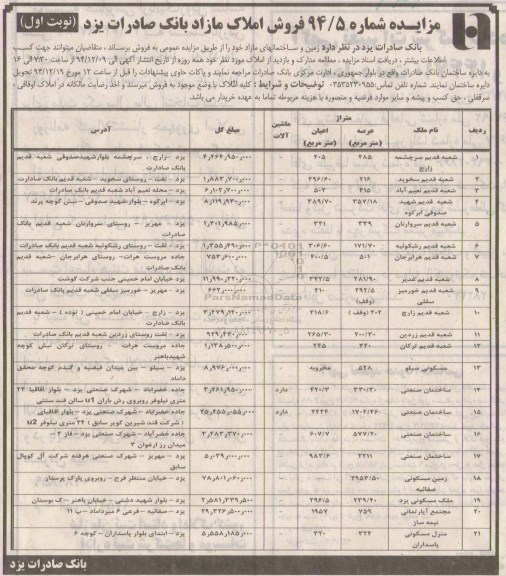 مزایده شماره ۹۴/۵ فروش املاک مازاد بانک صادرات یزد (نوبت اول)
بانک صادرات یزد در نظر دارد زمین و ساختمانهای مازاد خود را از طریق مزایده عمومی به فروش برساند ، متقاضیان میتوانند جهت کسب
اطلاعات بیشتر ، دریافت اسناد مزایده ، مطالعه مدارک و بازدید از املاک مورد نظر خود همه روزه از تاریخ انتشار آگهی الی ۹۴/۱۲/۰۹ از ساعت ۷/۳۰ الی ۱۶
به دایره ساختمان بانک صادرات واقع در بلوار جمهوری ، اداره مرکزی بانک صادرات مراجعه نمایند و پاکات حاوی پیشنهادات را قبل از ساعت ۱۲ مورخ ۹۴/۱۲/۱۹ تحویل
دایره ساختمان نمایند. شماره تلفن تماس: ۰۳۵۳۵۲۳۰۹۵۵ توضیحات و شرایط : کلیه املاک با وضع موجود به فروش میرسند و اخذ رضایت مالکانه در املاک اوقافی ،
سرقفلی ، حق کسب و پیشه و سایر موارد فرضیه و متصوره با هزینه مربوطه تماما به عهده خریدار می باشد.
ردیف نام ملک متراژ عرصه (متر مربع) اعیان (متر مربع) ماشین آلات مبلغ کل آدرس
۱ شعبه قدیم سرچشمه زارچ ۲۸۵ ۴۰۵ - ۴٫۲۶۴٫۹۵۰٫۰۰۰ یزد -زارچ ، سرچشمه بلوارشهیدصدوقی شعبه قدیم بانک صادرات
۲ شعبه قدیم سخوید ۲۱۶ ۲۹۶/۶۰ - ۱٫۸۸۳٫۷۰۰٫۰۰۰ یزد - تفت - روستای سخوید - شعبه قدیم بانک صادارت
۳ شعبه قدیم نعیم آباد ۴۱۵ ۵۰۳ - ۶٫۱۰۲٫۷۰۰٫۰۰۰ یزد - محله نعیم آباد شعبه قدیم بانک صادرات
۴ شعبه قدیم شهید صدوقی ابرکوه ۳۵۷/۱۸ ۳۸۹/۷۰ - ۸٫۱۱۹٫۹۳۰٫۰۰۰ یزد - ابرکوه -بلوار شهید صدوقی - نبش کوچه پرند
۵ شعبه قدیم سروازنان ۳۳۹ ۳۳۱ - ۱٫۳۰۱٫۹۸۵٫۰۰۰ یزد - مهریز - روستای سروازنان شعبه قدیم بانک صادرات
۶ شعبه قدیم رشکوئیه ۱۷۱/۷۰ ۳۰۶/۶۰ - ۱٫۳۵۵٫۴۹۰٫۰۰۰ یزد - تفت - روستای رشکوئیه شعبه قدیم بانک صادرات
۷ شعبه قدیم هرابرجان ۵۰۱ ۴۰۰/۵ - ۷۵۳٫۶۰۰٫۰۰۰ جاده مروست هرات- روستای هرابرجان -شعبه قدیم بانک صادرات
۸ شعبه قدیم غدیر ۲۸۱/۹۰ ۳۴۲/۵ - ۱۱٫۹۹۰٫۲۲۰٫۰۰۰ یزد خیابان امام خمینی جنب شرکت گوشت
۹ شعبه قدیم خورمیز سفلی ۳۹۲/۵ (وقف) ۲۱۰ - ۶۶۲٫۰۰۰٫۰۰۰ یزد - مهریز - خورمیز سفلی شعبه قدیم بانک صادرات
۱۰ شعبه قدیم زارچ ۲۰۲ (وقف) ۲۱۸/۶ - ۳٫۴۷۹٫۱۲۰٫۰۰۰ یزد - زارچ - خیابان امام خمینی (توده) -شعبه قدیم بانک صادرات
۱۱ شعبه قدیم زردین ۲۰۰/۳۰ ۲۶۵/۳۰ - ۹۲۹٫۴۳۰٫۰۰۰ یزد - تفت روستای زردین شعبه قدیم بانک صادرات
۱۲ شعبه قدیم ترکان ۳۴۰ ۲۴۵ - ۱٫۱۳۸٫۵۰۰٫۰۰۰ جاده مروست هرات - روستای ترکان نبش کوچه شهیدباهنر
۱۳ مسکونی صیلو ۵۲۸ مخروبه - ۸٫۹۷۶٫۰۰۰٫۰۰۰ یزد - سیلو - بین میدان فیضیه و گندم کوچه محقق داماد
۱۴ ساختمان صنعتی ۳۳۰/۳۰ ۴۲۰/۳ دارد ۳٫۲۶۱٫۹۵۰٫۰۰۰ جاده خضرآباد - شهرک صنعتی یزد - بلوار آقاقیا ۲۴ متری نیلوفر روبروی رش باران u1 سالن قند سنتی
۱۵ ساختمان صنعتی ۱۷۰۴/۳۶۰ ۲۴۳۴ دارد ۲۵٫۲۵۵٫۰۵۵٫۰۰۰ جاده خضرآباد - شهرک صنعتی یزد - بلوار اقاقیای (شرکت قند شیرین کویر سابق ) ۲۴ متری نیلوفر u2
۱۶ ساختمان صنعتی ۵۷۷/۲۰ ۶۰۷/۷ - ۳٫۴۸۳٫۳۷۰٫۰۰۰ جاده خضرآباد - شهرک صنعتی یزد - فاز ۳ - میدان رز ارغوان ۳
۱۷ ساختمان صنعتی ۲۲۱۱ ۹۸۳/۶ - ۵٫۰۳۹٫۰۰۰٫۰۰۰ یزد - مهریز - شهرک صنعتی فرفته شرکت آل کوپال سابق
۱۸ زمین مسکونی صفائیه ۲۹۵۳/۵۰ - - ۷۸٫۸۰۱٫۶۰۰٫۰۰۰ یزد - خیابان منتظر فرج - روبروی پارک پرستار
۱۹ ملک مسکونی یزد ۲۳۹/۴۰ ۲۹۶/۵ - ۲٫۵۸۱٫۳۳۹٫۵۰۰ یزد - بلوار شهید دشتی - خیابان باهنر -ک بوستان
۲۰ مجتمع آپارتمانی نیمه ساز ۷۵۹ ۱۹۵۷ - ۲۹٫۳۲۶٫۵۰۰٫۰۰۰ یزد - صفائیه - فرعی ۶ میرداماد - پ ۱۱
۲۱ منزل مسکونی پاسداران ۳۲۴ ۳۲۰ - ۵٫۵۵۸٫۱۸۵٫۰۰۰ یزد - ابتدای بلوار پاسداران - کوچه ۶
بانک صادرات یزد